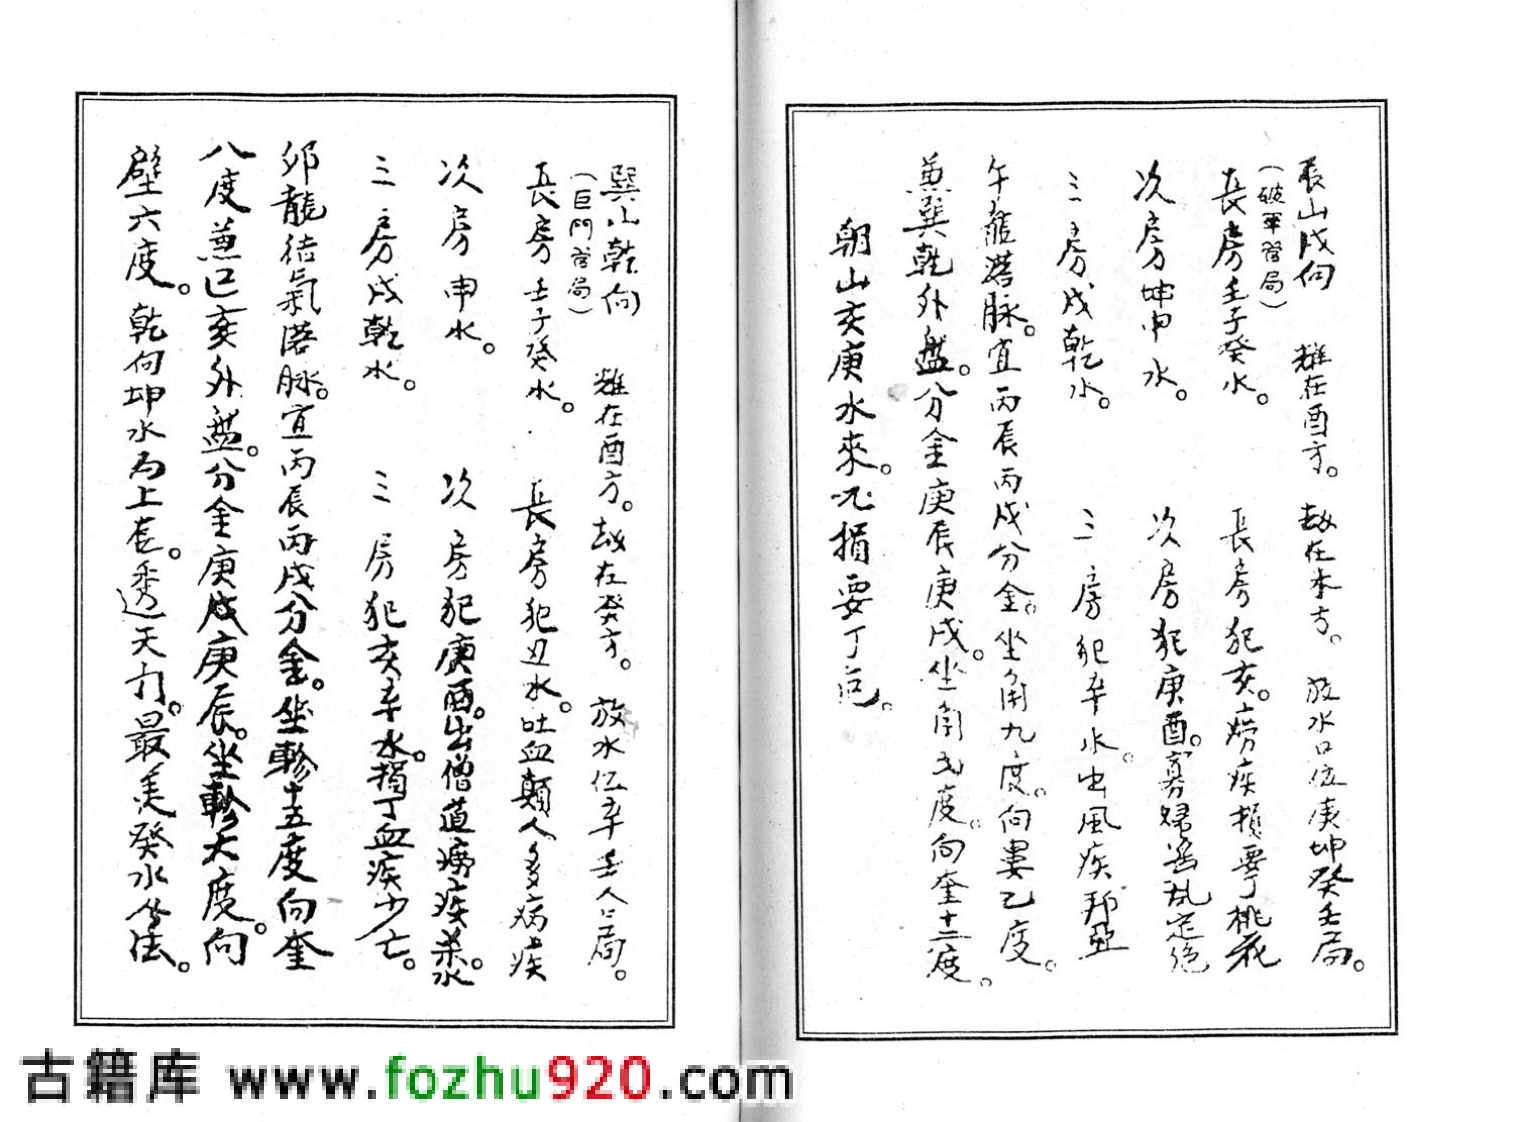 辰山戌向 雌在酉方。劫在未方。放水口位庚坤癸壬局。
(破軍管局)
長房壬子癸水。 長房犯亥。癆疾損要丁桃花
次房坤申水。 次房犯庚酉。寡婦淫乱定絕
三房戌乾水。 三房犯辛水。出風疾邦亞
午龍落脉。宜丙辰丙戌分金。坐角九度。向婁乙度。
兼巽乾外盤。分金庚辰庚戌。坐角弍度。向奎十三度。
朝山亥庚水來。况損要丁
巽山乾向 雌在酉方。劫在癸方。放水位辛壬人局。
(巨門管局)
長房壬子癸水。 長房犯丑水。吐血顛人多病疾
次房申水。 次房犯庚酉。出僧道癆疾。
三房戌乾水。 三房犯亥辛水。損丁血疾少亡。
卯龍结氣落脉。宜丙辰丙戌分金。坐軫十五度向奎
八度兼巳亥外盤。分金庚戌庚辰。坐軫大度。向
壁六度。乾向坤水為上吉。透天竹。最美癸水坐法。
古籍库 www.fozhu920.com